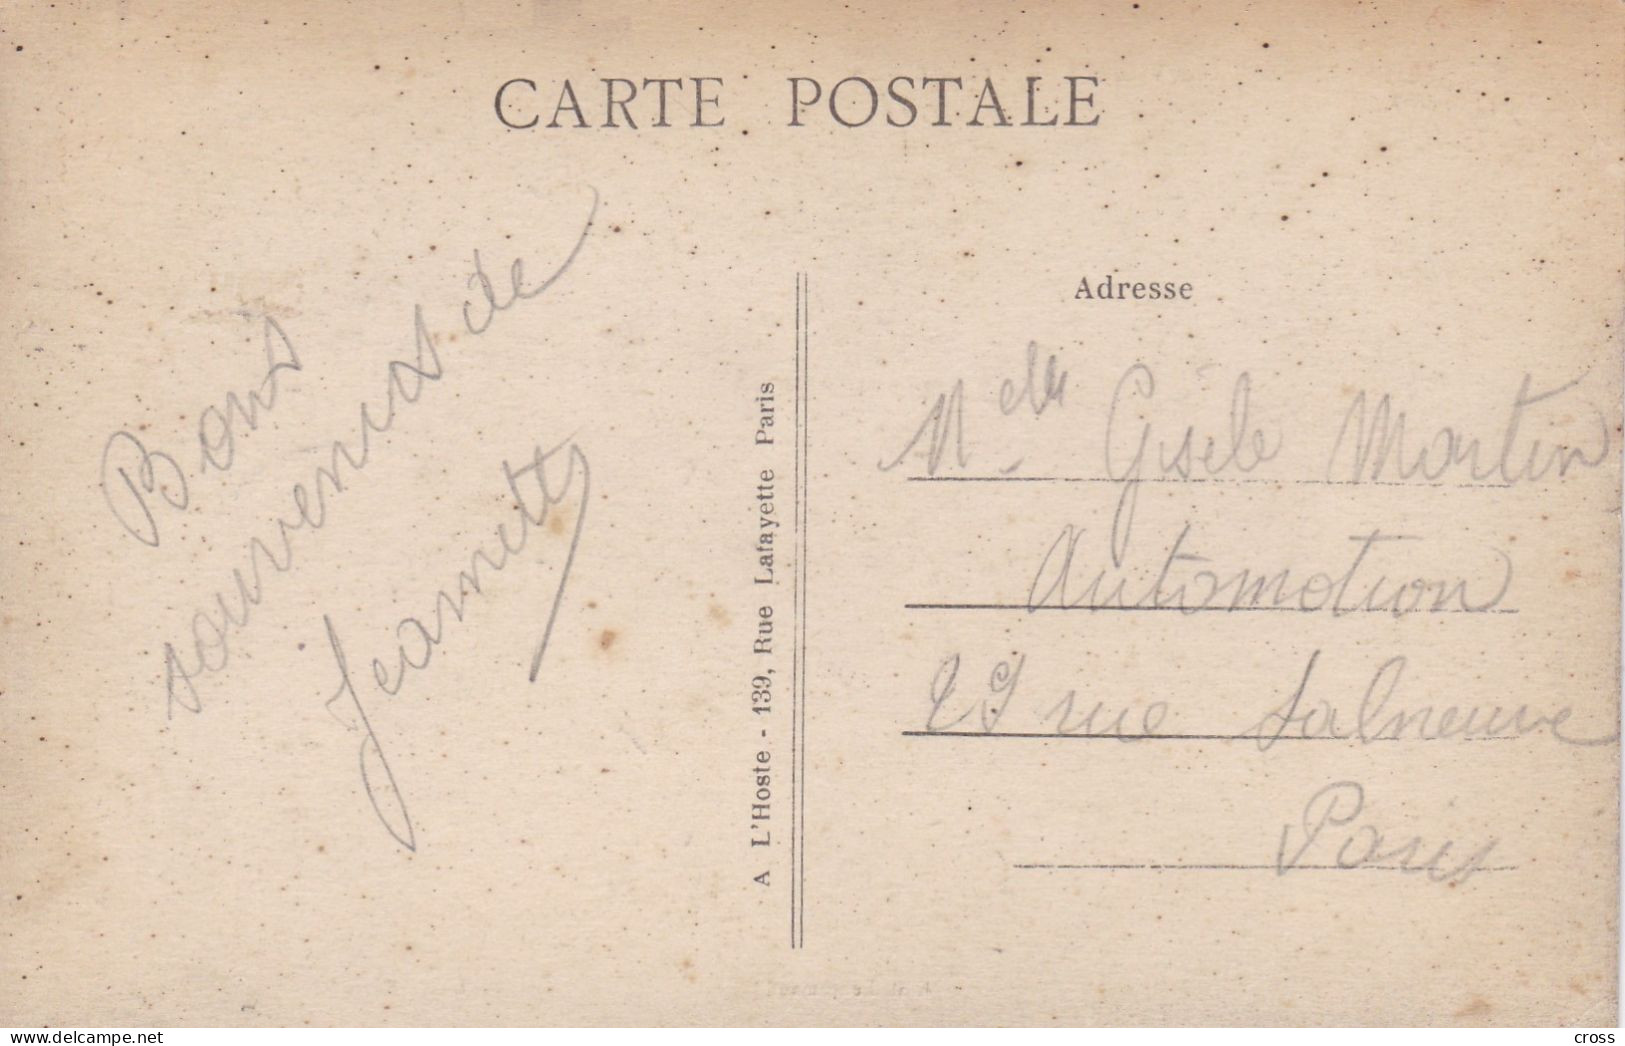 CARTE POSTALE
Bons
souvenirs de
Jeannette
A L'Hoste - 139, Rue Lafayette Paris
Adresse
Melle Gisèle Martin
Automotion
29 rue Salneuve
Paris
www.delcampe.net
cross